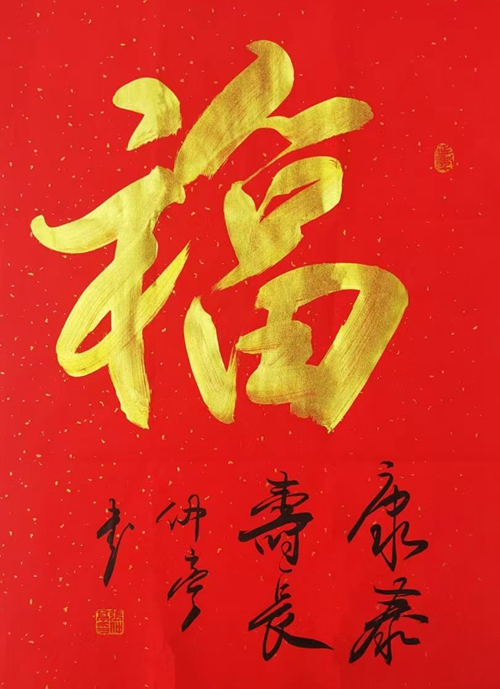 福
康泰
壽長
仲亭
书